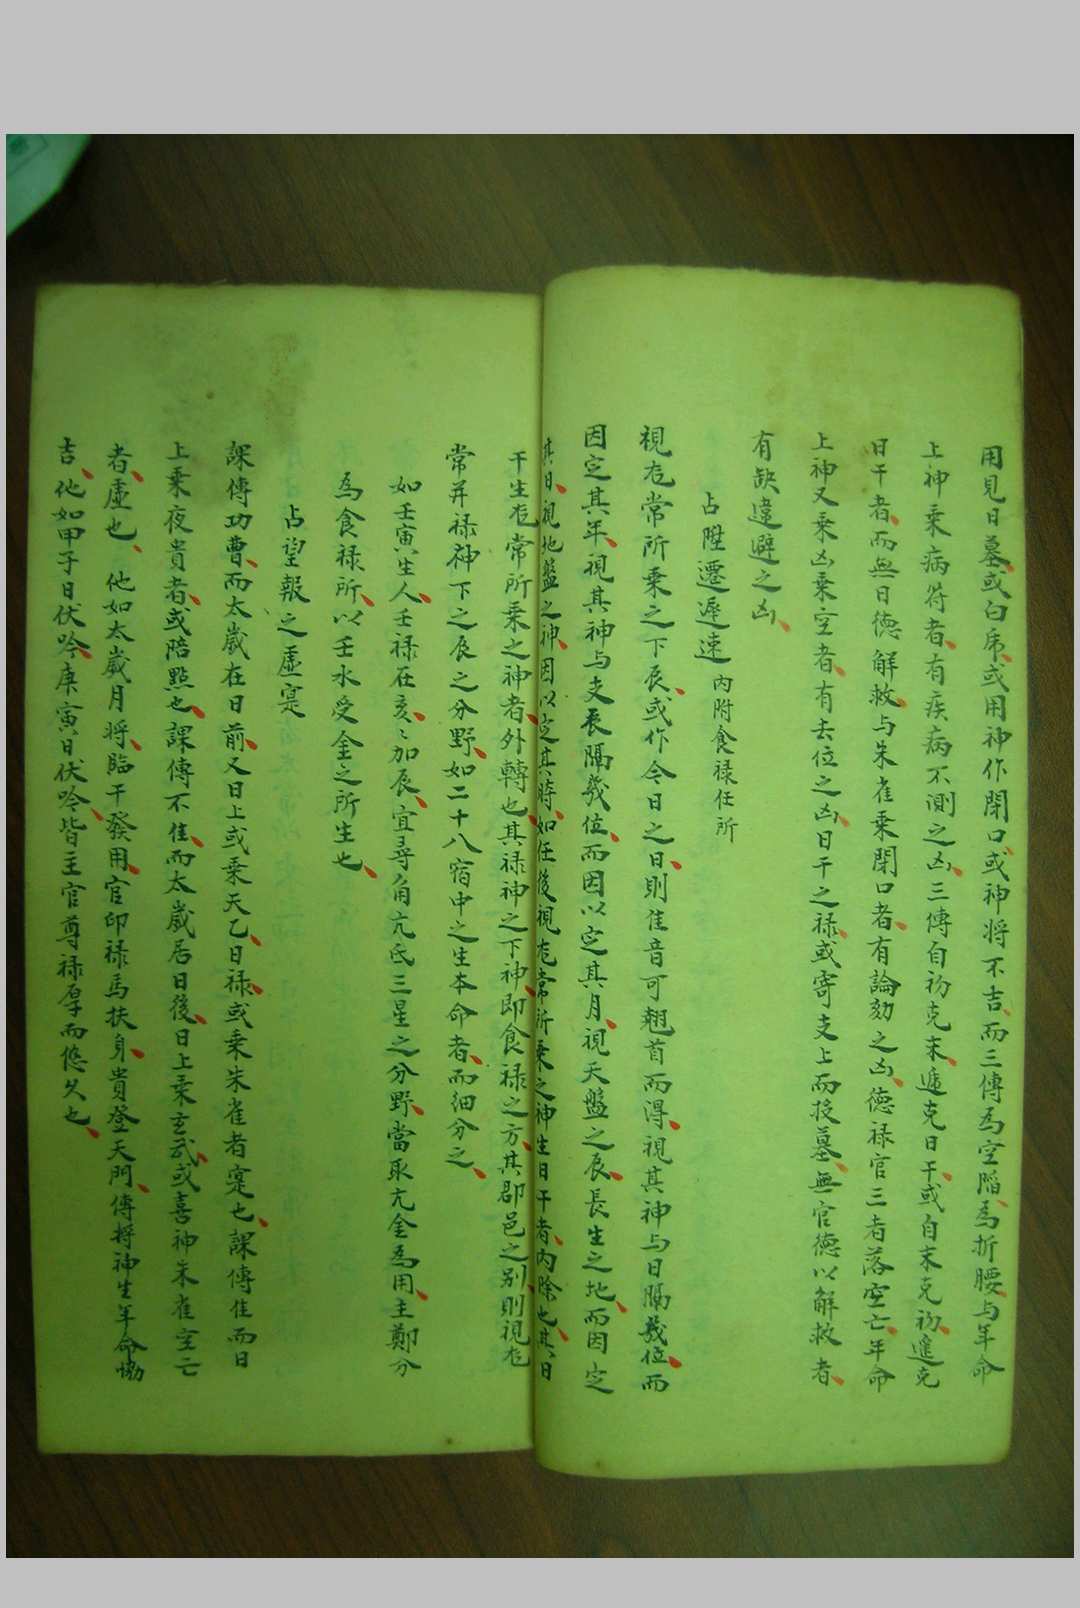 用見日墓或白虎或用神作閉口或神将不吉而三傳為空陷為折腰与年命
上神乗病符者有疾病不測之凶三傳自初克末遞克日干或自末克初進克
日干者而無日徳解救与朱雀乗閉口者有論劾之凶徳禄官三者落空亡年命
上神又乗凶乗空者有去位之凶日干之禄或寄支上而投墓無官徳以解救者
有缺違避之凶
占陞遷遅速 内附食禄任所
視㡯常所乗之下辰或作今日之日則隹音可翹首而淂視其神与日隔㡬位而
因定其年視其神与支辰隔㡬位而因以定其月視天盤之辰長生之地而因定
其日視地盤之神因以定其時如任後視㡯常所乗之神生日干者内除也其日
干生㡯常所乗之神者外轉也其禄神之下神即食禄之方其郡邑之别則視㡯
常并禄神下之辰之分野如二十八宿中之生本命者而细分之
如壬寅生人壬禄在亥〻加辰宜尋角亢氐三星之分野當取亢金為用主鄭分
為食禄所以壬水受金之所生也
占望報之虚寔
課傳功曹而太嵗在日前又日上或乗天乙日禄或乗朱雀者寔也課傳隹而日
上乗夜貴者或陪㸃也課傳不隹而太嵗居日後日上乗玄武或喜神朱雀空亡
者虚也他如太嵗月将臨干發用官印禄馬扶身貴登天門傳将神生年命恊
吉他如甲子日伏吟庚寅日伏吟皆主官尊禄厚而悠久也